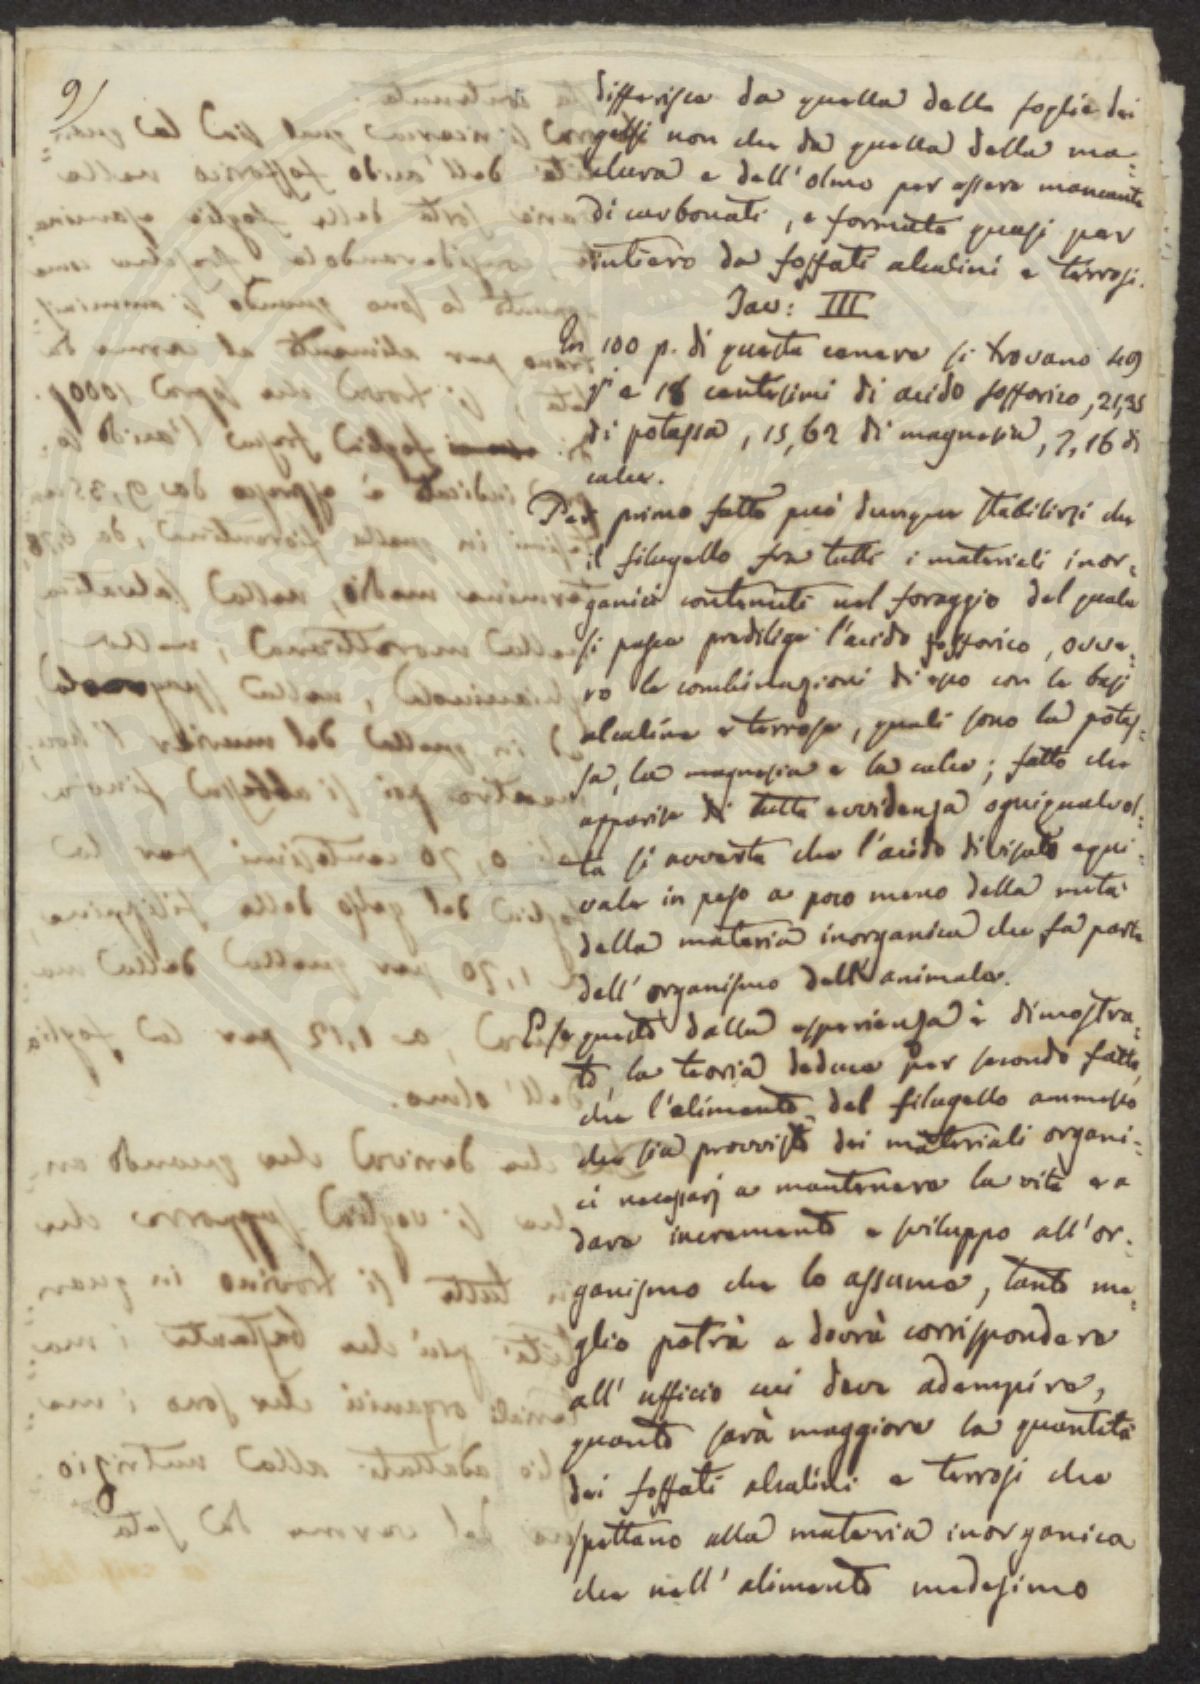 9/
differisce da quella delle foglie dei
gelsi non che da quella della ma=
clura e dell'olmo per essere mancante
di carbonati, e formata quasi per
intiero da fosfati alcalini e terrosi.
Tav: III
In 100 p. di questa cenere si trovano 49
p. e 18 centesimi di acido fosforico, 21,35
di potassa, 15,62 di magnesia, 7,16 di
calce.
Per primo fatto può dunque stabilirsi che
il filugello fra tutti i materiali inor=
ganici contenuti nel foraggio del quale
si pasce predilige l'acido fosforico, ovve=
ro le combinazioni di esso con le basi
alcaline e terrose, quali sono la potas=
sa, la magnesia e la calce; fatto che
apparisce di tutta evvidenza ogniqualvol=
ta si avverta che l'acido divisato equi=
vale in peso a poco meno della metà
della materia inorganica che fa parte
dell'organismo dell'animale.
E se questo dalla esperienza è dimostra=
to, la teoria deduce per secondo fatto,
che l'alimento del filugello ammesso
che sia provvisto dei materiali organi=
ci necessarj a mantenere la vita e a
dare incremento e sviluppo all'or=
ganismo che lo assume, tanto me=
glio potrà e dovrà corrispondere
all'ufficio cui deve adempire,
quanto sarà maggiore la quantità
dei fosfati alcalini e terrosi che
spettano alla materia inorganica
che nell'alimento medesimo